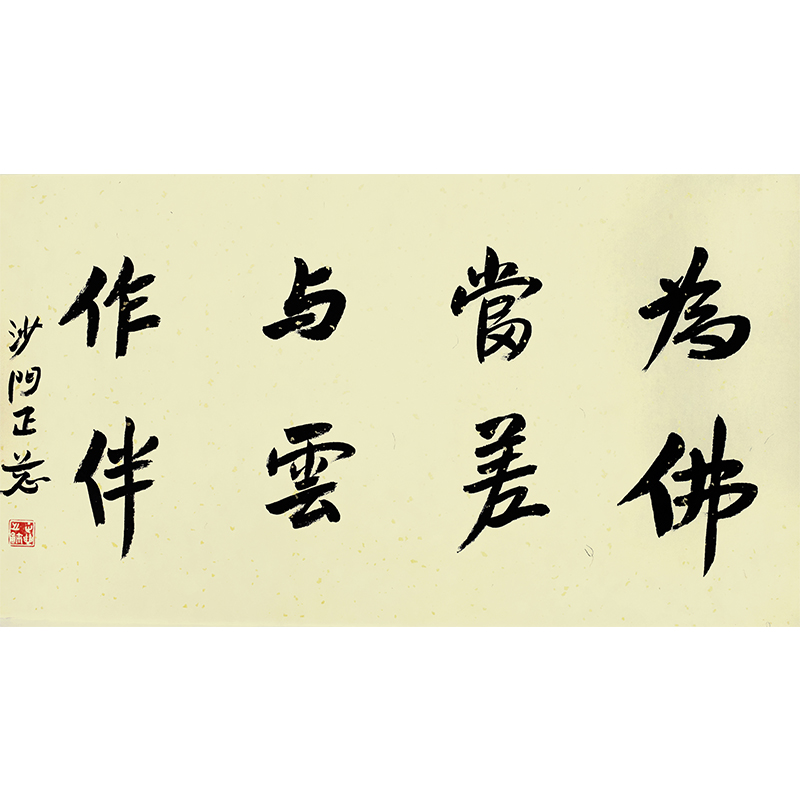 為佛
當差
与雲
作伴
沙門正慈